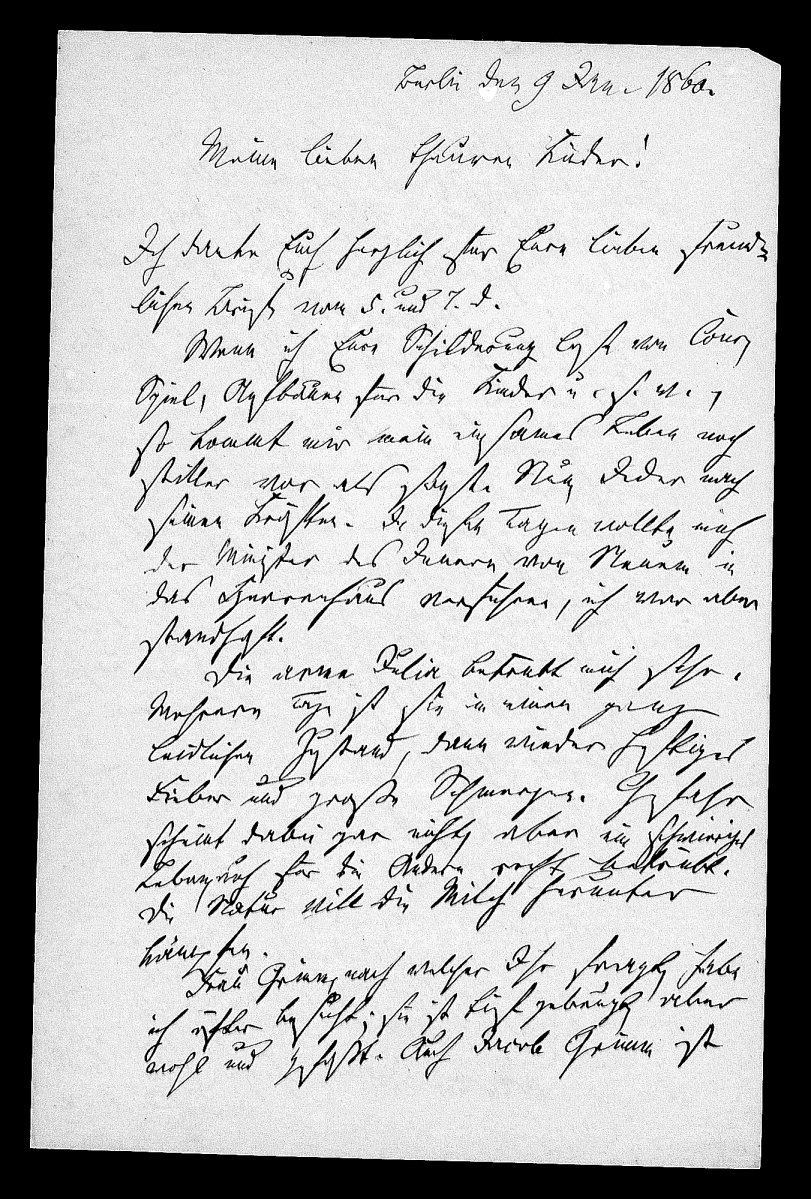 Berlin den 9 Jan. 1860.
Meine lieben theuren Kinder!
Ich danke Euch herzlich für Eure lieben freund-
lichen Briefe vom 5. und 7. d.
Wenn ich Eure Schilderung lese von
Spiel, Aufbauen für die Kinder u. s. w.,
so kommt mir mein einsames Leben noch
stiller vor als sonst. Nun Jeder nach
seinen Kräften. In diesen Tagen wollte mich
der Minister des Innern von Neuem in
das Herrenhaus verführen, ich war aber
standhaft.
Die arme Julia betrübt mich sehr.
Mehrere Tage ist sie in einem ganz
leidlichen Zustand, dann wieder heftiges
Fieber und große Schmerzen. Gefahr
scheint dabei gar nicht, aber ein schwieriges
für die Andern recht betrübt.
Die Natur will die Milch herunter
kämpfen.
Frau Grimm, nach welcher Ihr fragt, habe
ich öfter besucht; sie ist tief gebeugt aber
wohl und gefaßt. Auch Jacob Grimm ist